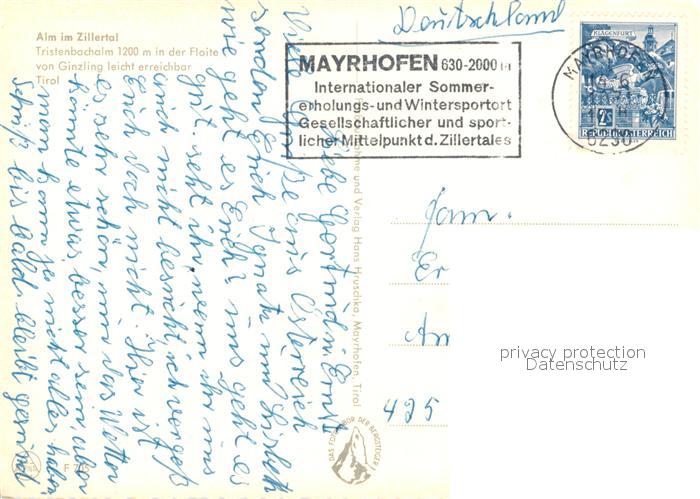 Alm im Zillertal
Tristenbachalm 1200 m in der Floite
von Ginzling leicht erreichbar
Tirol
Deutschland
MAYRHOFEN 630-2000 m
Internationaler Sommer-
erholungs- und Wintersportort
Gesellschaftlicher und sport-
licher Mittelpunkt d. Zillertales
KLAGENFURT
2S
REPUBLIK ÖSTERREICH
MAYRHOFEN
Liebe Gertrud u. Ernst
Viele Grüße aus Österreich
senden Erich
wie geht es Euch? uns geht es
gut. seht ihr wenn ihr uns
auch nicht besucht, ich vergeß
Euch doch nicht. Hier ist
es sehr schön, nur das Wetter
könnte etwas besser sein, aber
man kann ja nicht alles haben
bis bald bleibt gesund
und Verlag Hans Hruschka, Mayrhofen, Tirol
Fam.
Er
An
425
privacy protection
Datenschutz
DAS EDELWEISS DER BERGSTEIGER